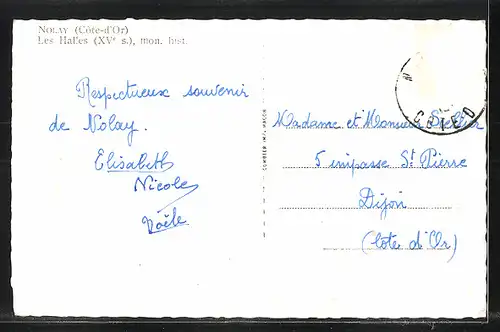 NOLAY (Côte-d'Or)
Les Halles (XVe s.), mon. hist.
Respectueux souvenir
de Nolay.
Elisabeth
Nicole
Noële
COMBIER IMP. MACON
Madame et Monsieur
5 impasse St Pierre
Dijon
(Côte d'Or)